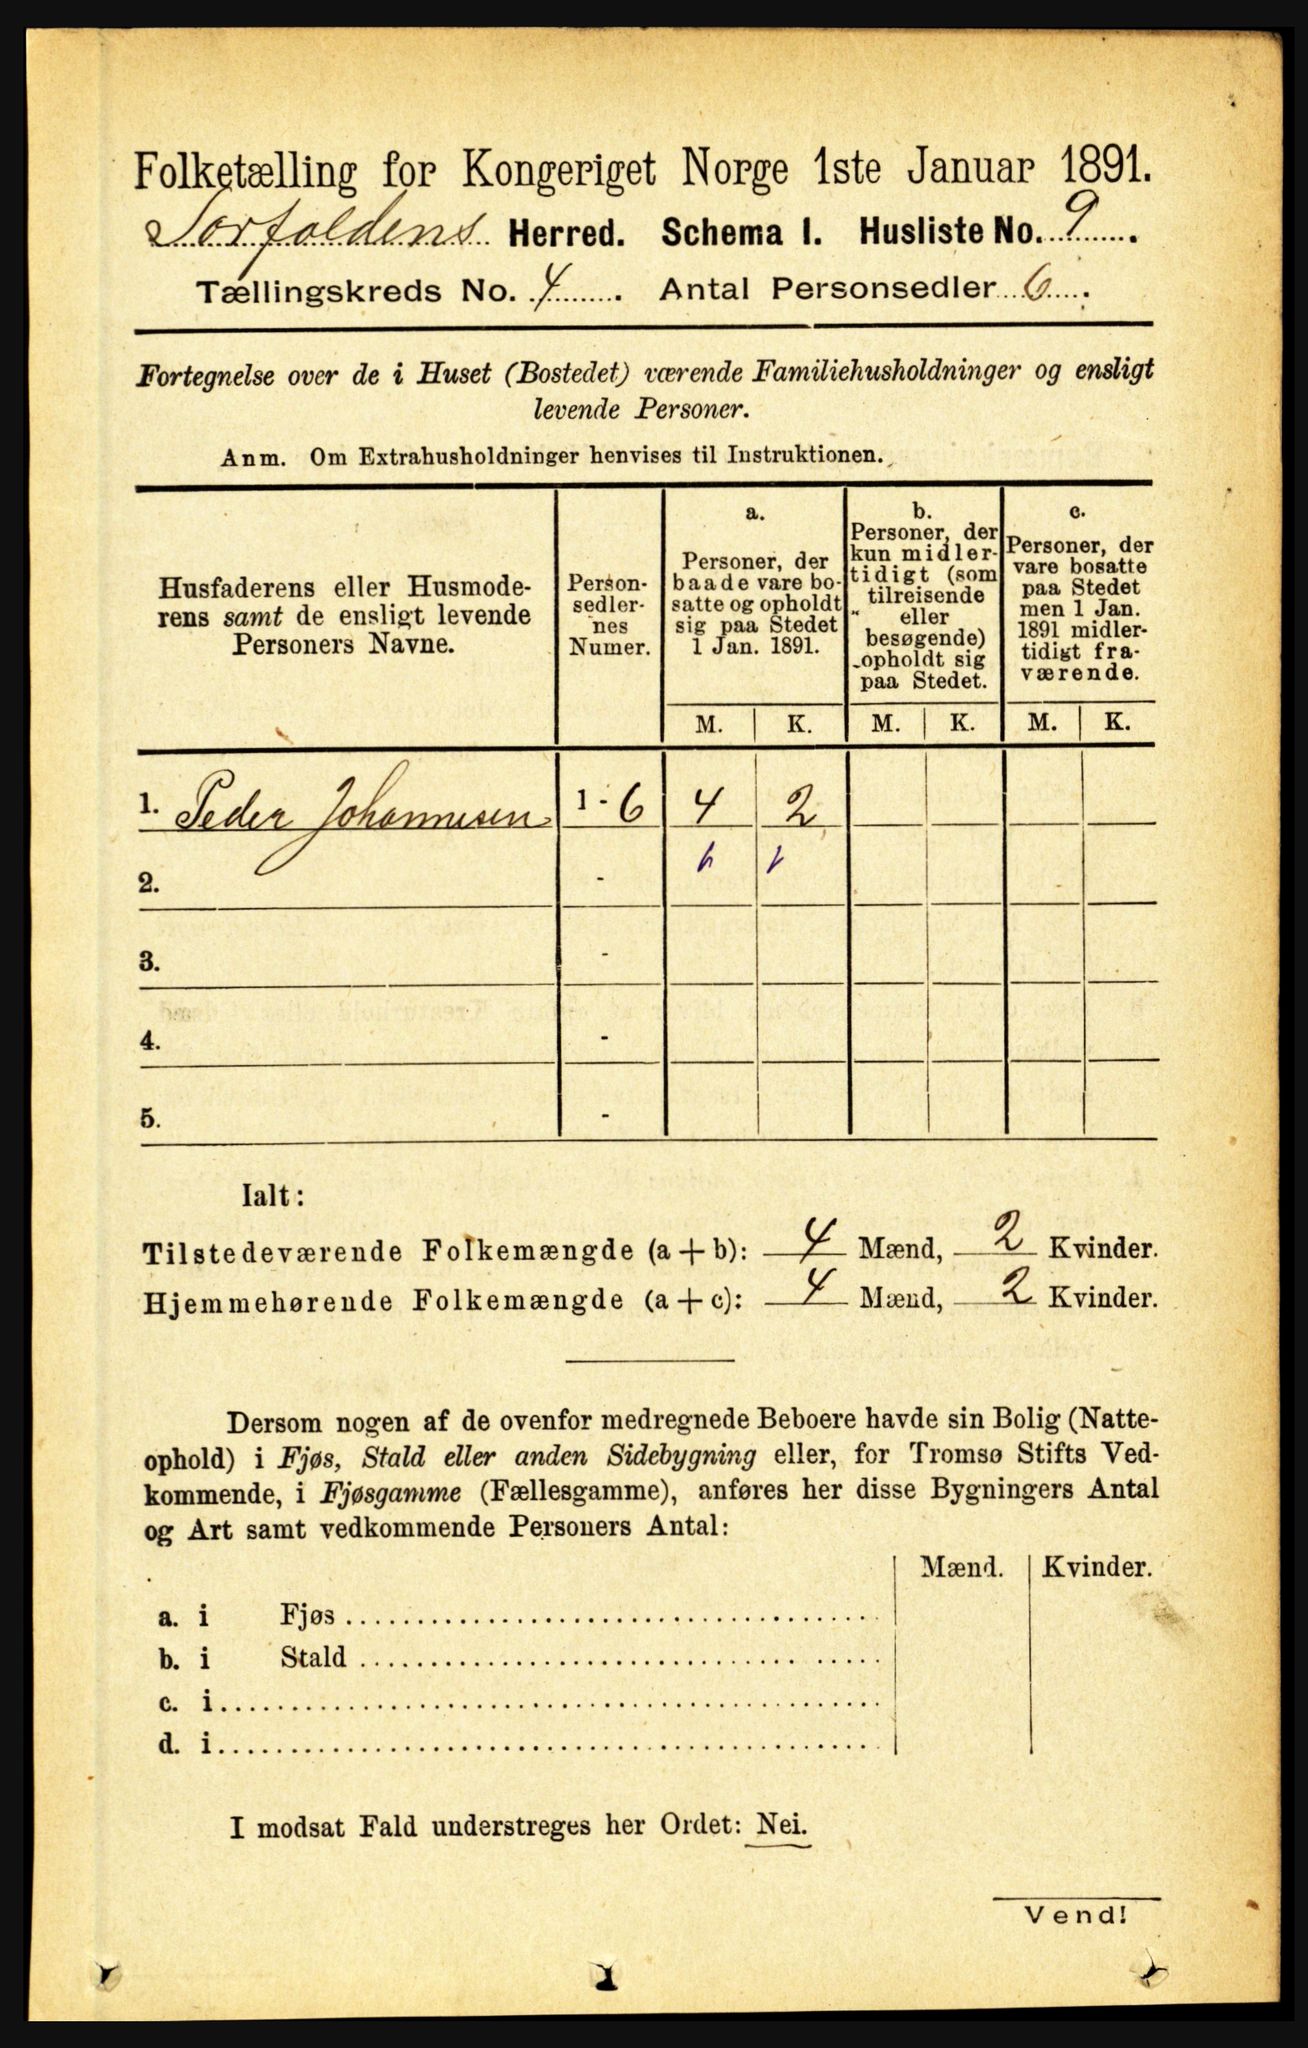 Folketælling for Kongeriget Norge 1ste Januar 1891.
Sørfoldens Herred. Schema I. Husliste No. 9.
Tællingskreds No. 4. Antal Personsedler 6.
Fortegnelse over de i Huset (Bostedet) værende Familiehusholdninger og ensligt
levende Personer.
Anm. Om Extrahusholdninger henvises til Instruktionen.
Husfaderens eller Husmode-
rens samt de ensligt levende
Personers Navne.
Person-
sedler-
nes
Numer.
a.
Personer, der
baade vare bo-
satte og opholdt
sig paa Stedet
1 Jan. 1891.
b.
Personer, der
kun midler-
tidigt (som
tilreisende
eller
besøgende)
opholdt sig
paa Stedet.
c.
Personer, der
vare bosatte
paa Stedet
men 1 Jan.
1891 midler-
tidigt fra-
værende.
M. K. M. K. M. K.
1. Peder Johannesen 1 - 6 4 2
2. -
3. -
4. -
5. -
Ialt:
Tilstedeværende Folkemængde (a + b): 4 Mænd, 2 Kvinder.
Hjemmehørende Folkemængde (a + c): 4 Mænd, 2 Kvinder.
Dersom nogen af de ovenfor medregnede Beboere havde sin Bolig (Natte-
ophold) i Fjøs, Stald eller anden Sidebygning eller, for Tromsø Stifts Ved-
kommende, i Fjøsgamme (Fællesgamme), anføres her disse Bygningers Antal
og Art samt vedkommende Personers Antal:
Mænd. Kvinder.
a. i Fjøs
b. i Stald
c. i
d. i
I modsat Fald understreges her Ordet: Nei.
Vend!